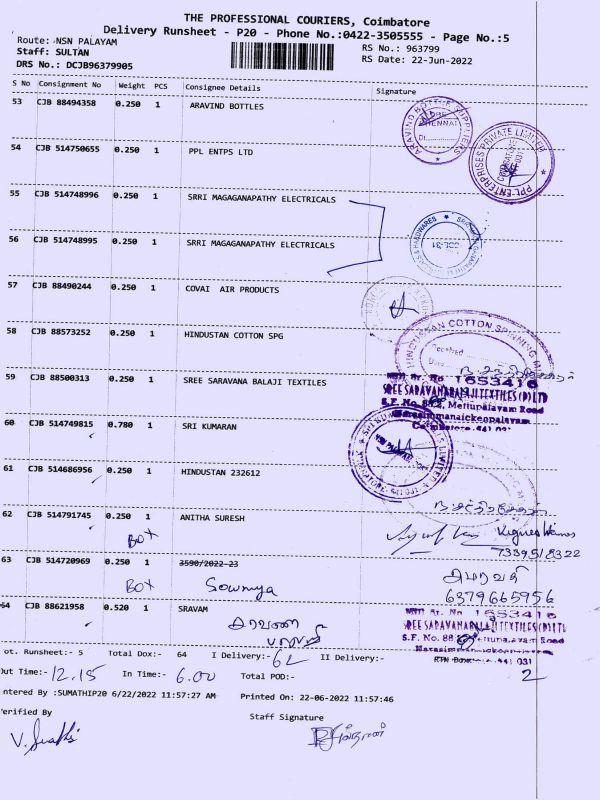 THE PROFESSIONAL COURIERS, Coimbatore
Delivery Runsheet - P20 - Phone No.:0422-3505555 - Page No.:5
Route: NSN PALAYAM
RS No.: 963799
Staff: SULTAN
RS Date: 22-Jun-2022
DRS No.: DCJB96379905
S No Consignment No Weight PCS Consignee Details Signature
53 CJB 88494358 0.250 1 ARAVIND BOTTLES
54 CJB 514750655 0.250 1 PPL ENTPS LTD
PPL ENTERPRISES PRIVATE LIMITED
55 CJB 514748996 0.250 1 SRRI MAGAGANAPATHY ELECTRICALS
56 CJB 514748995 0.250 1 SRRI MAGAGANAPATHY ELECTRICALS
57 CJB 88490244 0.250 1 COVAI AIR PRODUCTS
58 CJB 88573252 0.250 1 HINDUSTAN COTTON SPG
HINDUSTAN COTTON SPINNING
Received
59 CJB 88500313 0.250 1 SREE SARAVANA BALAJI TEXTILES
1653416
60 CJB 514749815 0.780 1 SRI KUMARAN
61 CJB 514686956 0.250 1 HINDUSTAN 232612
62 CJB 514791745 0.250 1 ANITHA SURESH
BOX
63 CJB 514720969 0.250 1 3590/2022-23
BOX Sowmya
6379665956
64 CJB 88621958 0.520 1 SRAVAM
சரவணா
ot. Runsheet:- 5 Total Dox:- 64 I Delivery:- 62 II Delivery:- RTN Dox:- 2
Out Time:- 12.15 In Time:- 6.00 Total POD:-
ntered By :SUMATHIP20 6/22/2022 11:57:27 AM Printed On: 22-06-2022 11:57:46
erified By Staff Signature